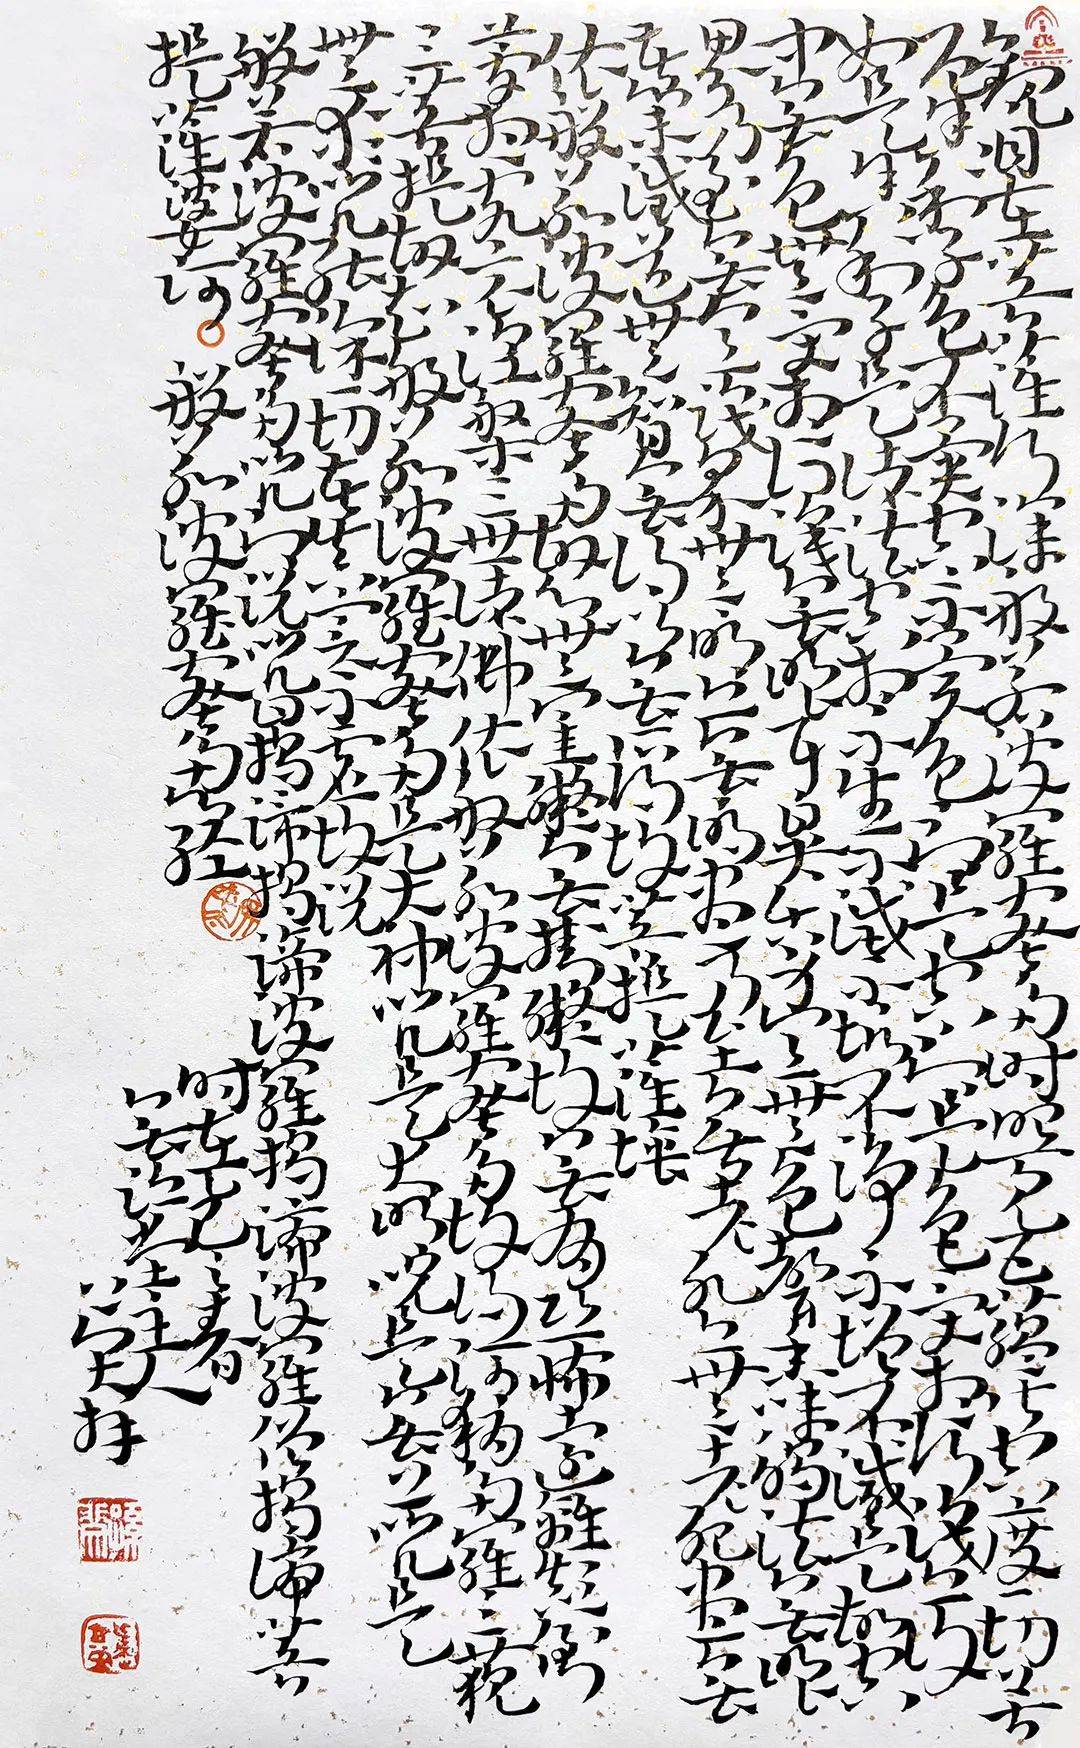 觀自在菩薩行深般若波羅蜜多時照見五蘊皆空度一切苦
厄舍利子色不異空空不異色色即是空空即是色受想行識亦復
如是舍利子是諸法空相不生不滅不垢不淨不增不減是故空
中無色無受想行識無眼耳鼻舌身意無色聲香味觸法無眼
界乃至無意識界無無明亦無無明盡乃至無老死亦無老死盡無
苦集滅道無智亦無得以無所得故菩提薩埵
依般若波羅蜜多故心無罣礙無罣礙故無有恐怖遠離顛倒
夢想究竟涅槃三世諸佛依般若波羅蜜多故得阿耨多羅三藐
三菩提故知般若波羅蜜多是大神咒是大明咒是無上咒是
無等等咒能除一切苦真實不虛故說
般若波羅蜜多咒即說咒曰揭諦揭諦波羅揭諦波羅僧揭諦菩
提薩婆訶 般若波羅蜜多心經
時在乙巳之春
拜